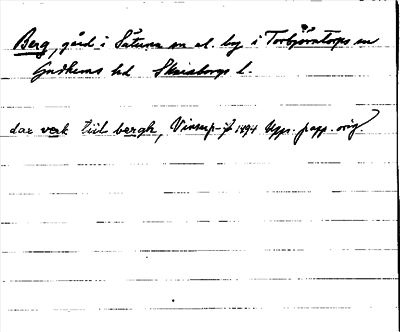 Berg, gård i Sätuna sn el. by i Torbjörntorps sn
Gudhems hd Skaraborgs l.
dax verk till bergh, 1494 Upps. papp. orig.